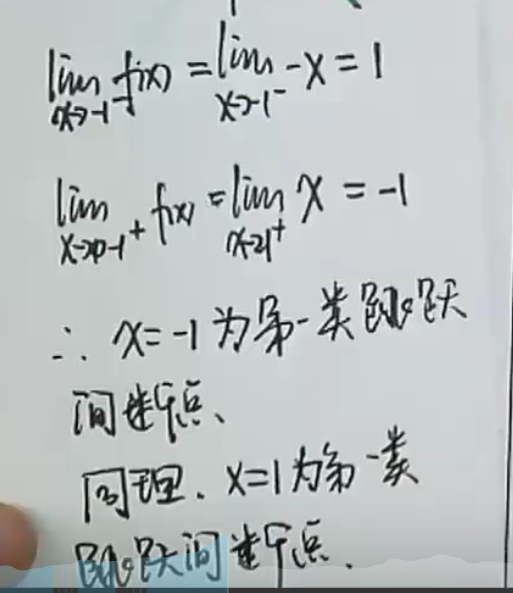 lim x→-1⁻ f(x) = lim x→-1⁻ -x = 1
lim x→-1⁺ f(x) = lim x→-1⁺ x = -1
∴ x=-1为第一类跳跃
间断点、
同理. x=1为第一类
跳跃间断点.